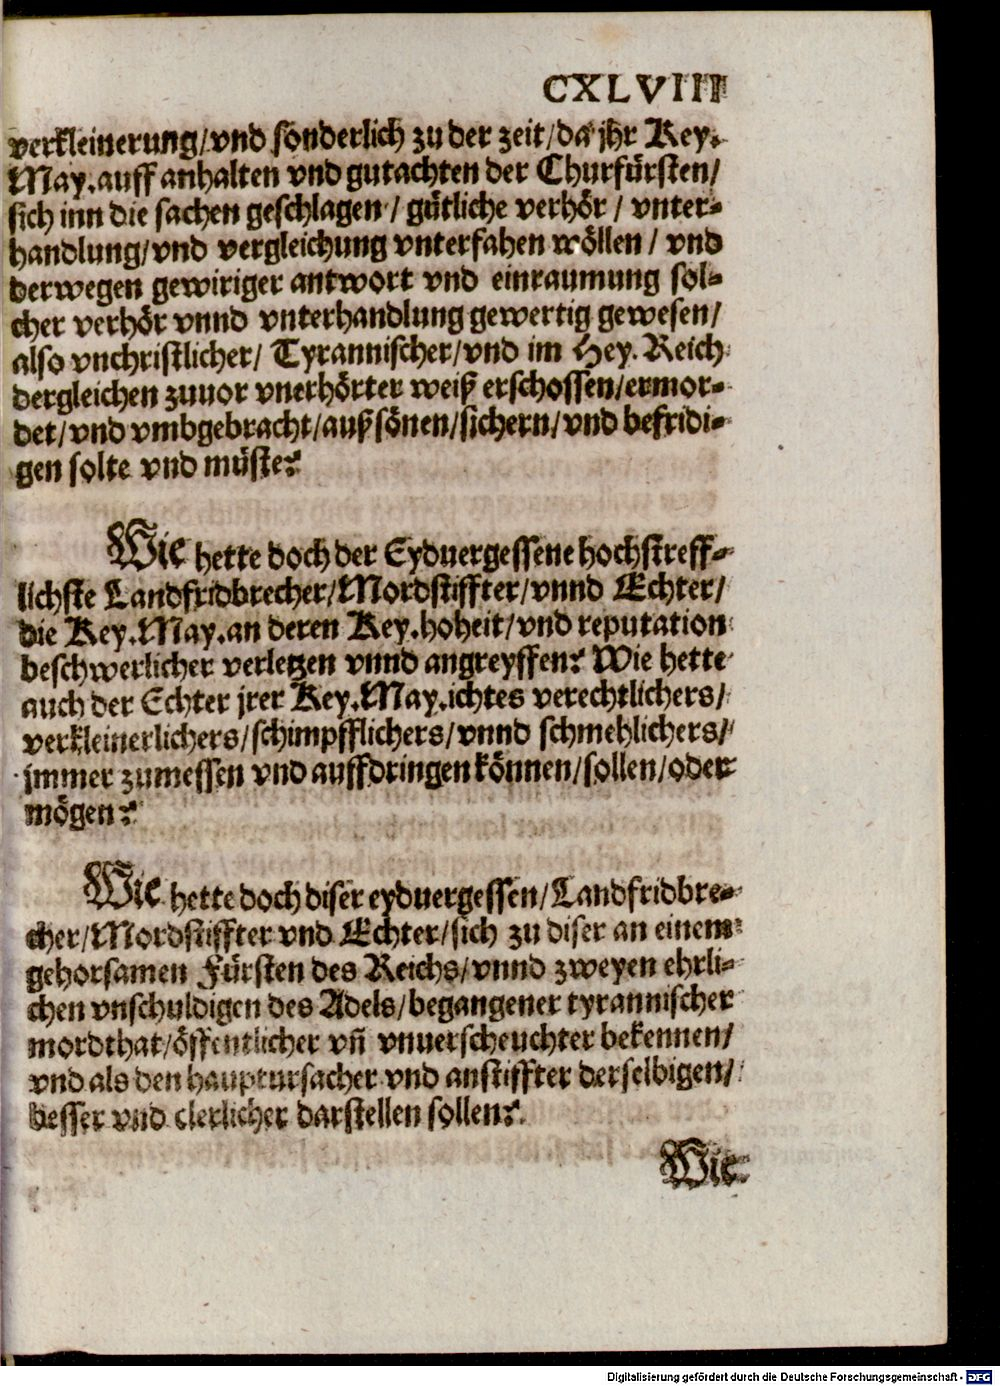 CXLVIII
verkleinerung/vnd sonderlich zu der zeit/da jhr Key.
May.auff anhalten vnd gutachten der Churfürsten/
sich inn die sachen geschlagen/ gütliche verhör/ vnter-
handlung/vnd vergleichung vnterfahen wöllen/ vnd
derwegen gewiriger antwort vnd einraumung sol-
cher verhör vnnd vnterhandlung gewertig gewesen/
also vnchristlicher/ Tyrannischer/vnd im Hey. Reich
dergleichen zuuor vnerhörter weiß erschossen/ermor-
det/vnd vmbgebracht/außsönen/sichern/vnd befridi-
gen solte vnd müste?
Wie hette doch der Eyduergessene hochstreff-
lichste Landfridbrecher/Mordstiffter/vnnd Echter/
die Key.May.an deren Key.hoheit/vnd reputation
beschwerlicher verletzen vnnd angreyffen? Wie hette
auch der Echter jrer Key.May.ichtes verechtlichers/
verkleinerlichers/schimpfflichers/vnnd schmehlichers/
jmmer zumessen vnd auffdringen können/sollen/oder
mögen?
Wie hette doch diser eyduergessen/Landfridbre-
cher/Mordstiffter vnd Echter/sich zu diser an einem
gehorsamen Fürsten des Reichs/vnnd zweyen ehrli-
chen vnschuldigen des Adels/begangener tyrannischer
mordthat/öffentlicher vñ vnuerscheuchter bekennen/
vnd als den hauptursacher vnd anstiffter derselbigen/
besser vnd clerlicher darstellen sollen?
Wie
Digitalisierung gefördert durch die Deutsche Forschungsgemeinschaft - DFG